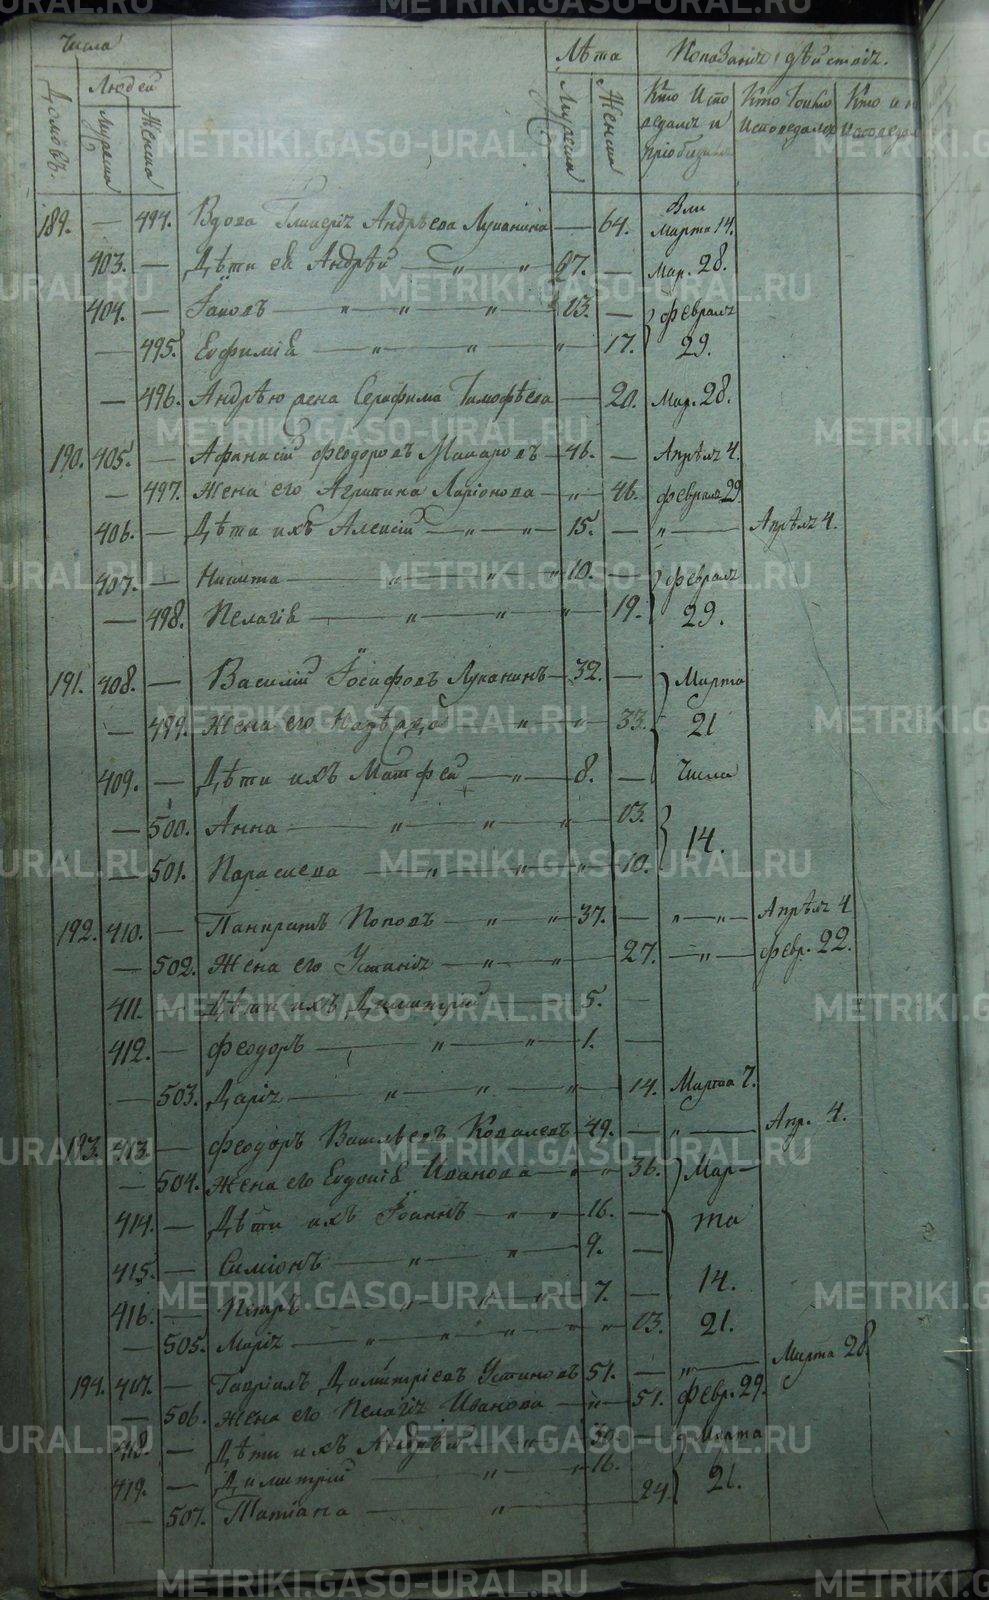 Числа
Лѣта
Показанiе дѣйствiя.
Домовъ.
Людей
Мужеска
Женска
Мужеска
Женска
Кто Испо
ведалъ и
прiобщил
Кто Токмо
Исповедался
Кто и н
Исповедал
189. — 494. Вдова Гликерiя Андрѣева Луканина — 64. Марта 14.
403. — Дѣти ея Андрѣй — „ — „ — 27. — Мар. 28.
404. — Iаковъ — „ — „ — „ — 13. — февраля
— 495. Евфимiя — „ — „ — „ — 17. 29.
— 496. Андрѣю жена Серафима Тимофѣева — 20. Мар. 28.
190. 405. — Афанасiй Феодоровъ Макаровъ — 46. — Апрѣля 4.
— 497. Жена его Агрипина Ларiонова — „ — 46. февраля 29
406. — Дѣти ихъ Алексiй — „ — „ — 15. — „ — Апрѣля 4.
407. — Никита — „ — „ — „ 10. — февраля
— 498. Пелагiя — „ — „ — „ — 19. 29.
191. 408. — Василiй Iосифовъ Луканинъ — 32. — Марта
— 499. Жена его Надежда — „ — „ — 33. 21
409. — Дѣти ихъ Матфей — „ — 8. — Числа
— 500. Анна — „ — „ — „ — 13.
14.
— 501. Параскева — „ — „ — „ — 10.
192. 410. — Панкратъ Поповъ — „ — „ 37. — „ — „ — Апрѣля 4
— 502. Жена его Устинiя — „ — „ — 27. — „ — февр. 22.
411. — Дѣти ихъ Димитрiй — 5. —
412. — Феодоръ — „ — „ — 1. —
— 503. Дарiя — „ — „ — „ — 14. Марта 7.
193. 413. — Феодоръ Васильевъ Ковалевъ 49. — „ — Апр. 4.
— 504. Жена его Евдокiя Иванова — „ — „ 36. Мар-
414. — Дѣти ихъ Iоаннъ — „ — „ — 16. — та
415. — Симiонъ — „ — „ — 9. —
416. — Петръ — „ — „ — „ — 7. — 14.
— 505. Марiя — „ — „ — „ — „ — 13. 21.
194. 417. — Гаврiилъ Димитрiевъ Устиновъ 51. — „ — Марта 28.
— 506. Жена его Пелагiя Иванова — „ — 51. февр. 29.
418. — Дѣти ихъ Андрѣй — „ — 30. — Марта
419. — Димитрiй — „ — „ 16. 21.
— 507. Татiана — „ — 24.
METRIKI.GASO-URAL.RU